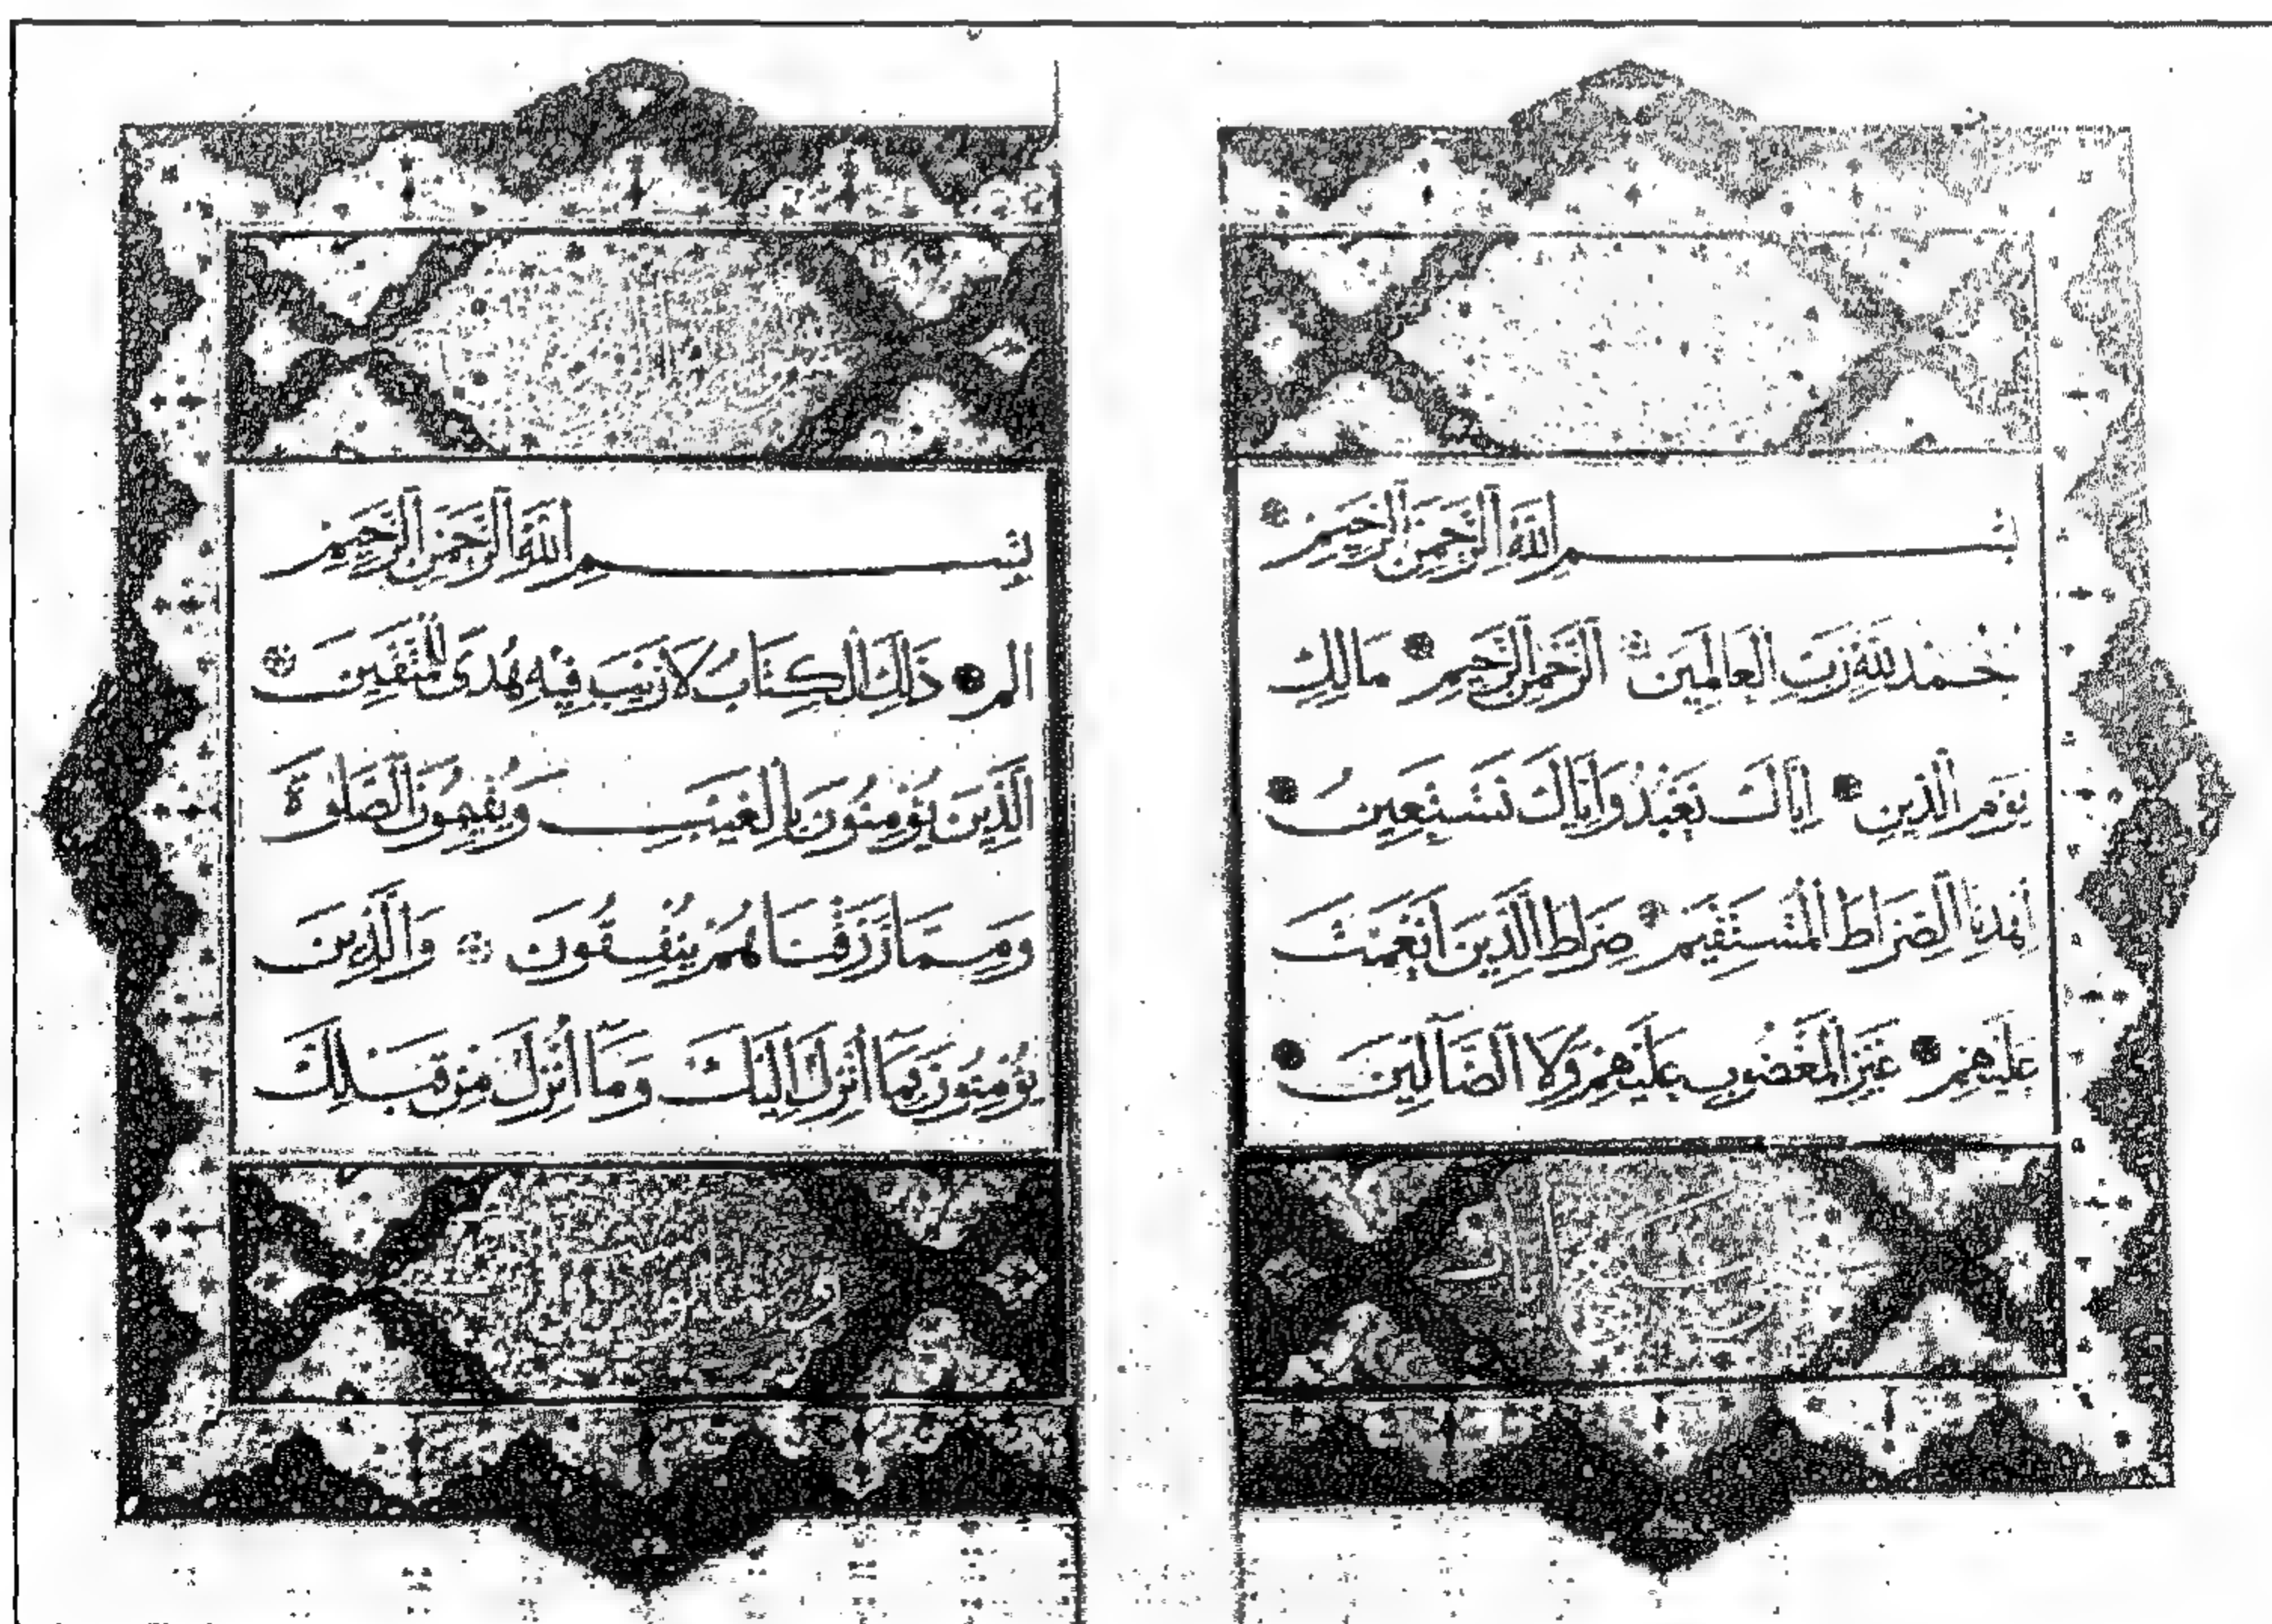 بِسْمِ اللَّهِ الرَّحْمَنِ الرَّحِيمِ
لْحَمْدُ لِلَّهِ رَبِّ الْعَالَمِينَ الرَّحْمَنِ الرَّحِيمِ مَالِكِ
يَوْمِ الدِّينِ اِيَّاكَ نَعْبُدُ وَاِيَّاكَ نَسْتَعِينُ
اِهْدِنَا الصِّرَاطَ الْمُسْتَقِيمَ صِرَاطَ الَّذِينَ اَنْعَمْتَ
عَلَيْهِمْ غَيْرِ الْمَغْضُوبِ عَلَيْهِمْ وَلَا الضَّالِّينَ
بِسْمِ اللَّهِ الرَّحْمَنِ الرَّحِيمِ
الم ذَلِكَ الْكِتَابُ لَا رَيْبَ فِيهِ هُدًى لِلْمُتَّقِينَ
الَّذِينَ يُؤْمِنُونَ بِالْغَيْبِ وَيُقِيمُونَ الصَّلٰوةَ
وَمِمَّا رَزَقْنَاهُمْ يُنْفِقُونَ وَالَّذِينَ
يُؤْمِنُونَ بِمَا اُنْزِلَ اِلَيْكَ وَمَا اُنْزِلَ مِنْ قَبْلِكَ